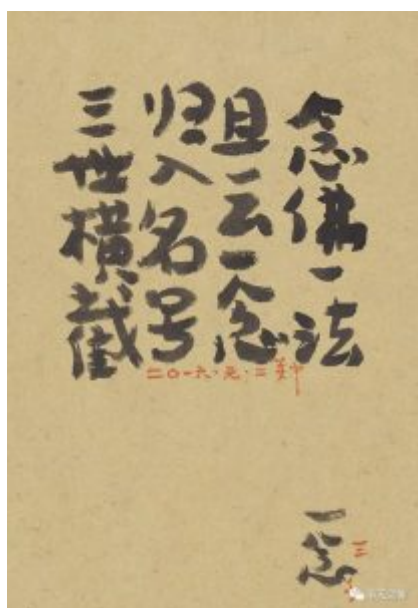 念佛一法
且云一念
归入名号
三世横截
二〇一六·元·二
一念
三